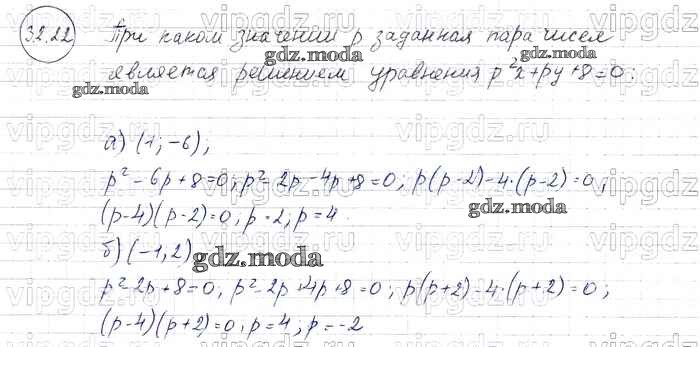 32.22 При каком значении p заданная пара чисел
является решением уравнения p²x+py+8=0:
а) (1; -6);
p² - 6p + 8 = 0; p² - 2p - 4p + 8 = 0; p(p-2) - 4·(p-2) = 0;
(p-4)(p-2) = 0; p = 2; p = 4
б) (-1, 2)
p² - 2p + 8 = 0, p² - 2p + 4p + 8 = 0; p(p+2) - 4·(p+2) = 0;
(p-4)(p+2) = 0, p = 4; p = -2
gdz.moda
gdz.moda
gdz.moda
gdz.moda
vipgdz.ru